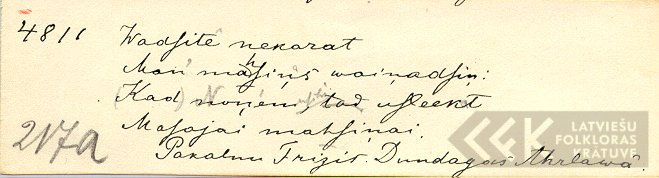 4811 Wadsite nekarat
Man' mahsiņs waiņadsiņ:
Kad noņem, tad usleekt
Masajai mahsiņai.
217a
Pakalnu Frizis. Dundagas Ahrlawā.
LATVIEŠU
FOLKLORAS
KRĀTUVE